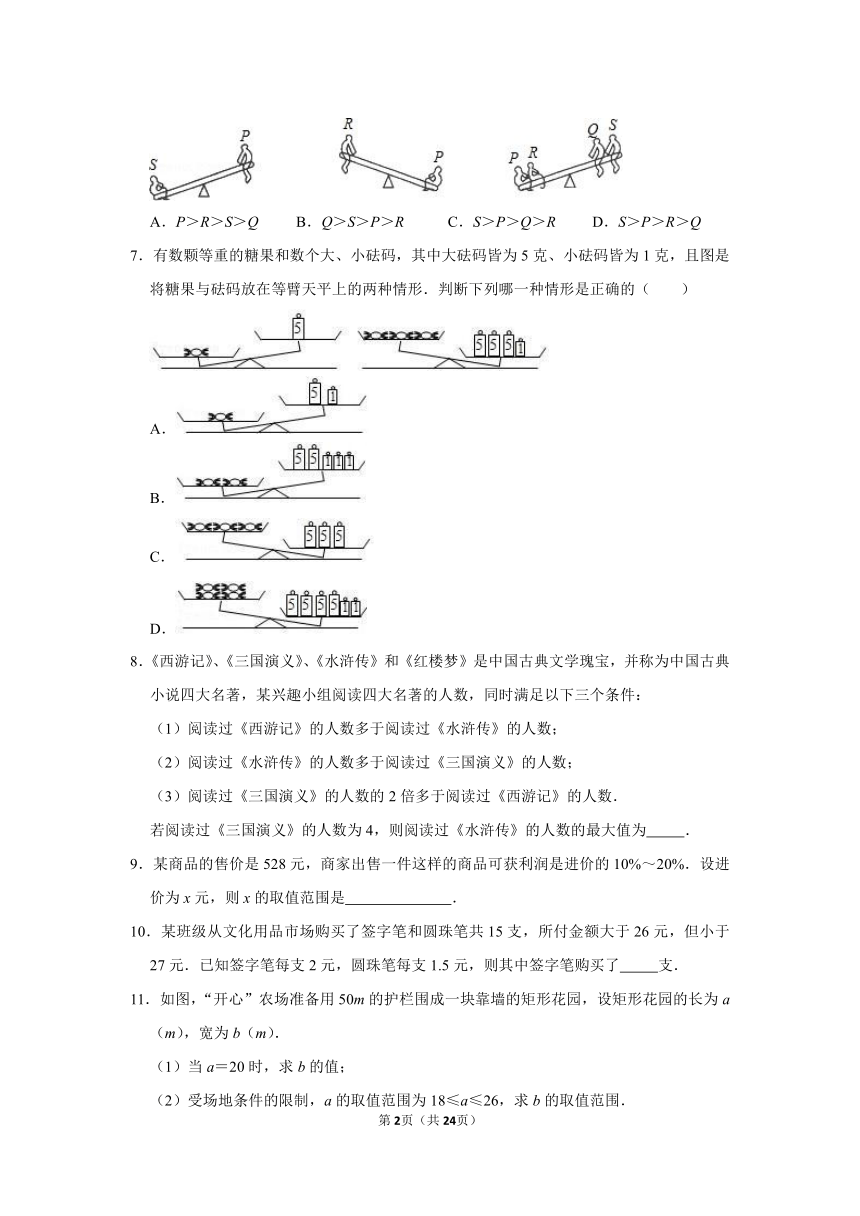 S P R P P R Q S
A．P＞R＞S＞Q B．Q＞S＞P＞R C．S＞P＞Q＞R D．S＞P＞R＞Q
7．有数颗等重的糖果和数个大、小砝码，其中大砝码皆为 5 克、小砝码皆为 1 克，且图是
将糖果与砝码放在等臂天平上的两种情形．判断下列哪一种情形是正确的（ ）
5 5 5 5 1
A． 5 1
B． 5 5 1 1 1
C． 5 5 5
D． 5 5 5 5 1 1
8.《西游记》、《三国演义》、《水浒传》和《红楼梦》是中国古典文学瑰宝，并称为中国古典
小说四大名著，某兴趣小组阅读四大名著的人数，同时满足以下三个条件：
（1）阅读过《西游记》的人数多于阅读过《水浒传》的人数；
（2）阅读过《水浒传》的人数多于阅读过《三国演义》的人数；
（3）阅读过《三国演义》的人数的 2 倍多于阅读过《西游记》的人数．
若阅读过《三国演义》的人数为 4，则阅读过《水浒传》的人数的最大值为 ．
9．某商品的售价是 528 元，商家出售一件这样的商品可获利润是进价的 10%～20%．设进
价为 x 元，则 x 的取值范围是 ．
10．某班级从文化用品市场购买了签字笔和圆珠笔共 15 支，所付金额大于 26 元，但小于
27 元．已知签字笔每支 2 元，圆珠笔每支 1.5 元，则其中签字笔购买了 支．
11．如图，“开心”农场准备用 50m 的护栏围成一块靠墙的矩形花园，设矩形花园的长为 a
（m），宽为 b（m）．
（1）当 a＝20 时，求 b 的值；
（2）受场地条件的限制，a 的取值范围为 18≤a≤26，求 b 的取值范围．
第2页（共24页）